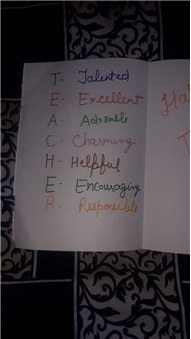 T- Talented
E- Excellent
A- Adorable
C- Charming
H- Helpful
E- Encouraging
R- Responsible